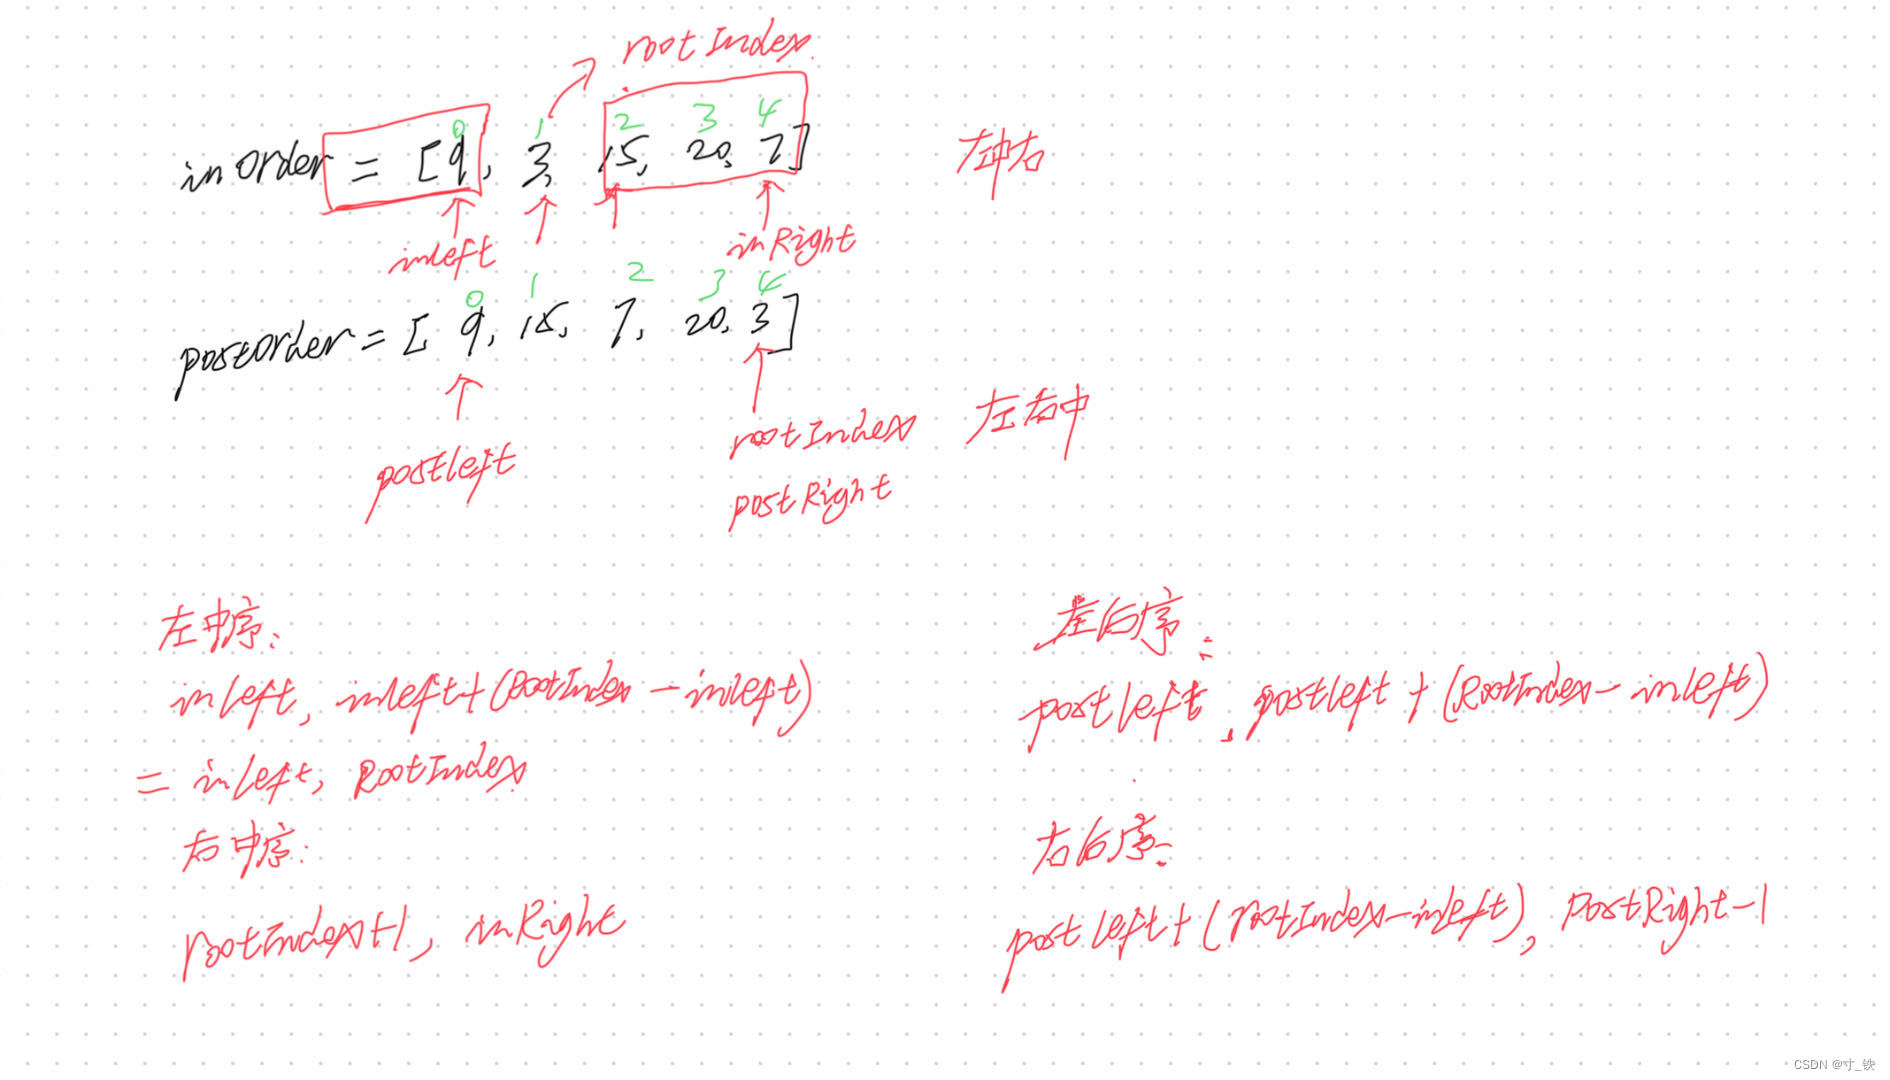 rootIndex
0 1 2 3 4
inorder = [9, 3, 15, 20, 7]
左中右
inleft
inRight
0 1 2 3 4
postorder = [9, 15, 7, 20, 3]
rootIndex
左右中
postleft
postRight
左中序:
inleft, inleft+(RootIndex-inleft)
= inleft, RootIndex
右中序:
rootIndex+1, inRight
左后序:
postleft, postleft+(RootIndex-inleft)
右后序:
postleft+(rootIndex-inleft), postRight-1
CSDN @寸_铁